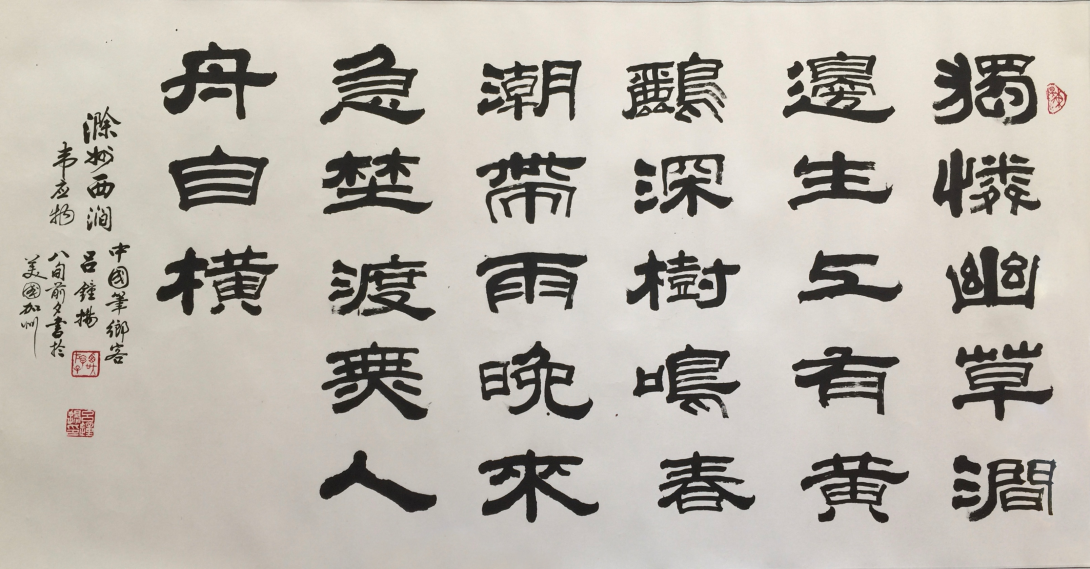 獨憐幽草澗
邊生上有黃
鸝深樹鳴春
潮帶雨晚來
急埜渡無人
舟自橫
滁州西涧
韦应物
中國筆鄉客
呂鐘揚
八旬前夕書於
美國加州